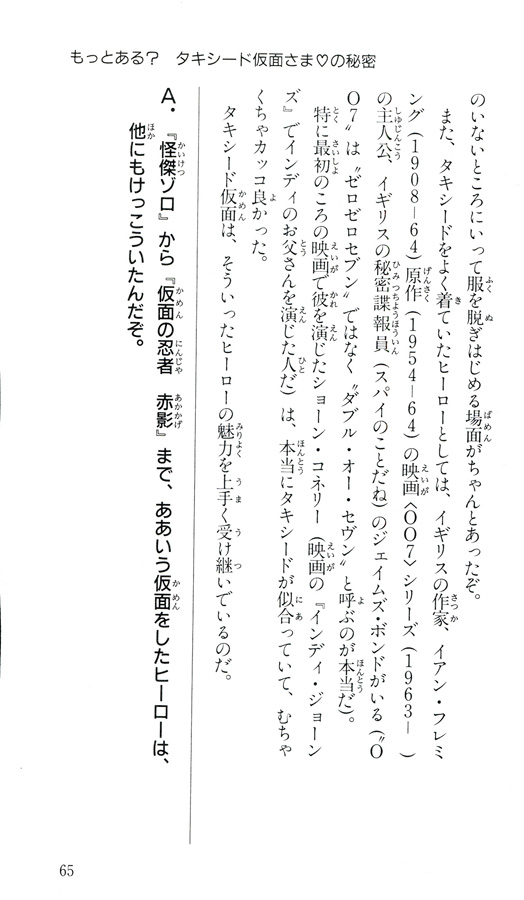 もっとある？　タキシード仮面さま♡の秘密
のいないところにいって服を脱ぎはじめる場面がちゃんとあったぞ。
また、タキシードをよく着ていたヒーローとしては、イギリスの作家、イアン・フレミ
ング（１９０８―６４）原作（１９５４―６４）の映画〈００７〉シリーズ（１９６３―　）
の主人公、イギリスの秘密諜報員（スパイのことだね）のジェイムズ・ボンドがいる（〝０
０７〟は〝ゼロゼロセブン〟ではなく〝ダブル・オー・セヴン〟と呼ぶのが本当だ）。
特に最初のころの映画で彼を演じたショーン・コネリー（映画の『インディ・ジョーン
ズ』でインディのお父さんを演じた人だ）は、本当にタキシードが似合っていて、むちゃ
くちゃカッコ良かった。
タキシード仮面は、そういったヒーローの魅力を上手く受け継いでいるのだ。
Ａ．『怪傑ゾロ』から『仮面の忍者　赤影』まで、ああいう仮面をしたヒーローは、
他にもけっこういたんだぞ。
65